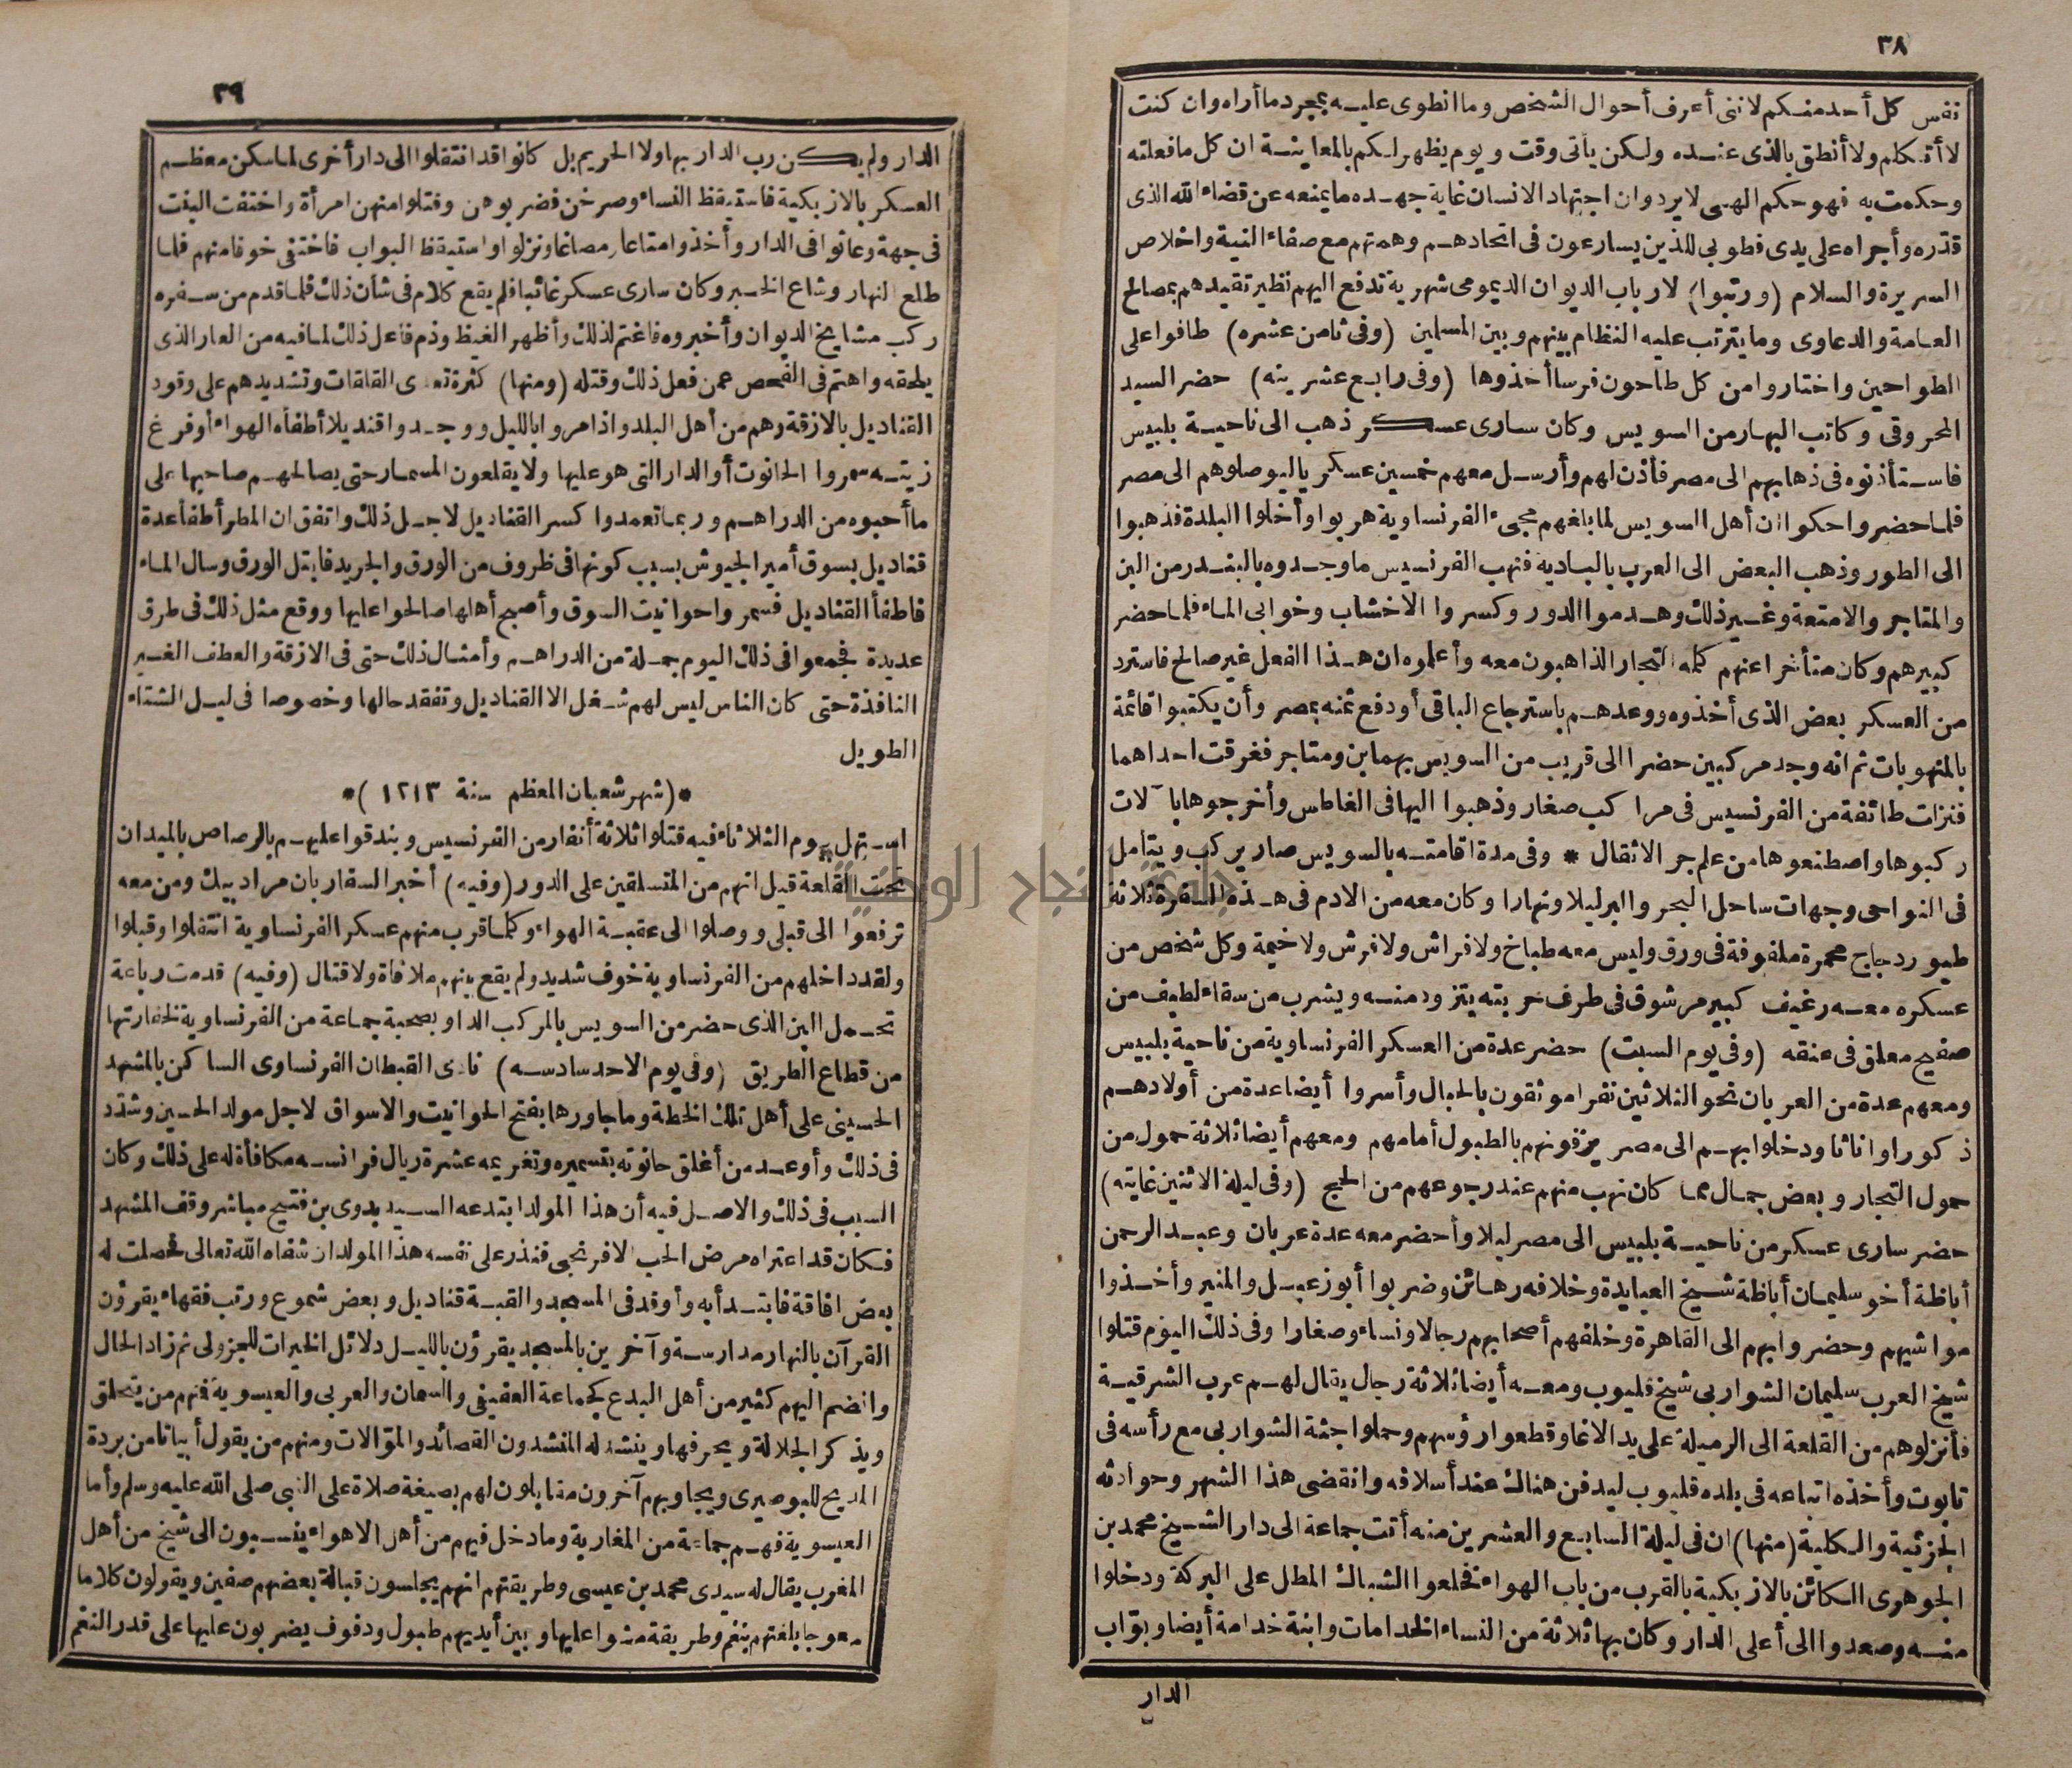 ٣٨
نفس كل أحد منكم لانني أعرف أحوال الشخص وما انطوى عليه بمجرد ما أراه وان كنت
لا أتكلم ولا أنطق بالذى عنده ولكن يأتى وقت ويوم يظهر لكم بالمعاينة ان كل ما فعلته
وحكمت به فهو حكم الهى لا يرد وان اجتهاد الانسان غاية جهده ما يمنعه عن قضاء الله الذى
قدّره وأجراه على يدى فطوبى للذين يسارعون فى اتحادهم وهمتهم مع صفاء النية واخلاص
السريرة والسلام (ورتبوا) لارباب الديوان الديمومى شهرية تدفع اليهم نظير تقيدهم بمصالح
العامة والدعاوى وما يترتب عليه النظام بينهم وبين المسلمين (وفى ثامن عشره) طافوا على
الطواحين واختاروا من كل طاحون فرسا أخذوها (وفى رابع عشرينه) حضر السيد
المحروقى وكاتب البهار من السويس وكان سارى عسكر ذهب الى ناحية بلبيس
فاستأذنوه فى ذهابهم الى مصر فأذن لهم وأرسل معهم خمسين عسكريا ليوصلوهم الى مصر
فلما حضروا حكوا ان أهل السويس لما بلغهم مجىء الفرنساوية هربوا وأخلوا البلدة فذهبوا
الى الطور وذهب البعض الى العرب بالبادية فنهب الفرنسيس ما وجدوه بالبندر من البن
والمتاجر والامتعة وغير ذلك وهدموا الدور وكسروا الاخشاب وخوابى الماء فلما حضر
كبيرهم وكان متأخرا عنهم كلمه التجار الذاهبون معه وأعلموه ان هذا الفعل غير صالح فاسترد
من العسكر بعض الذى أخذوه ووعدهم باسترجاع الباقى أو دفع ثمنه بمصر وأن يكتبوا قائمة
بالمنهوبات ثم انه وجد مركبين حضرا الى قريب من السويس بهما بن ومتاجر فغرقت احداهما
فنزلت طائفة من الفرنسيس فى مراكب صغار وذهبوا اليها فى الغاطس وأخرجوها با ٓلات
ركبوها واصطنعوها من علم جر الاثقال * وفى مدة اقامته بالسويس صار يركب ويتأمل
فى النواحى وجهات ساحل البحر والبر ليلا ونهارا وكان معه من الادم فى هذه السفرة ثلاثة
طيور دجاج محمرة ملفوفة فى ورق وليس معه طباخ ولا فراش ولا فرش ولا خيمة وكل شخص من
عسكره معه رغيف كبير مرشوق فى طرف حربته يتزود منه ويشرب من سقاء لطيف من
صفيح معلق فى عنقه (وفى يوم السبت) حضر عدة من العسكر الفرنساوية من ناحية بلبيس
ومعهم عدة من العربان نحو الثلاثين نفرا موثقون بالحبال وأسروا أيضا عدة من أولادهم
ذكورا واناثا ودخلوا بهم الى مصر يزفونهم بالطبول أمامهم ومعهم أيضا ثلاثة حمول من
حمول التجار وبعض جمال مما كان نهب منهم عند رجوعهم من الحج (وفى ليلة الاثنين غايته)
حضر سارى عسكر من ناحية بلبيس الى مصر ليلا وأحضر معه عدة عربان وعبد الرحمن
أباظة أخو سليمان أباظة شيخ العبايدة وخلافه رهائن وضربوا أبو زعبل والمنير وأخذوا
مواشيهم وحضروا بهم الى القاهرة وخلفهم أصحابهم رجالا ونساء وصغارا وفى ذلك اليوم قتلوا
شيخ العرب سليمان الشواربى شيخ قليوب ومعه أيضا ثلاثة رجال يقال لهم عرب الشرقية
فأنزلوهم من القلعة الى الرميلة على يد الاغا وقطعوا رؤسهم وحملوا جثة الشواربى مع رأسه فى
تابوت وأخذه اتباعه فى بلده قليوب ليدفن هناك عند أسلافه وانقضى هذا الشهر وحوادثه
الجزئية والكلية (منها) ان فى ليلة السابع والعشرين منه أتت جماعة الى دار الشيخ محمد بن
الجوهرى الكائن بالازبكية بالقرب من باب الهواء فخلعوا الشباك المطل على البركة ودخلوا
منه وصعدوا الى أعلى الدار وكان بها ثلاثة من النساء الخدامات وابنة خدامة أيضا وبوّاب
الدار
٣٩
الدار ولم يكن رب الدار بها ولا الحريم بل كانوا قد انتقلوا الى دار أخرى لما سكن معظم
العسكر بالازبكية فاستيقظ النساء وصرخن فضربوهن وقتلوا منهن امرأة واختفت البنت
فى جهة وعاثوا فى الدار وأخذوا متاعا ومصاغا ونزلوا واستيقظ البواب فاختفى خوفا منهم فلما
طلع النهار وشاع الخبر وكان سارى عسكر غائبا فلم يقع كلام فى شأن ذلك فلما قدم من سفره
ركب مشايخ الديوان وأخبروه فاغتم لذلك وأظهر الغيظ وذم فاعل ذلك لما فيه من العار الذى
يلحقه واهتم فى الفحص عمن فعل ذلك وقتله (ومنها) كثرة تعدى القلقات وتشديدهم على وقود
القناديل بالازقة وهم من أهل البلد واذا مروا بالليل ووجدوا قنديلا أطفأه الهواء أو فرغ
زيته سمروا الحانوت أو الدار التى هو عليها ولا يقلعون المسمار حتى يصالحهم صاحبها على
ما أحبوه من الدراهم وربما تعمدوا كسر القناديل لاجل ذلك واتفق ان المطر أطفأ عدة
قناديل بسوق أمير الجيوش بسبب كونها فى ظروف من الورق والجريد فابتل الورق وسال الماء
فاطفأ القناديل فسمروا حوانيت السوق وأصبح أهلها صالحوا عليها ووقع مثل ذلك فى طرق
عديدة فجمعوا فى ذلك اليوم جملة من الدراهم وأمثال ذلك حتى فى الازقة والعطف الغير
النافذة حتى كان الناس ليس لهم شغل الا القناديل وتفقد حالها وخصوصا فى ليل الشتاء
الطويل
*(شهر شعبان المعظم سنة ١٢١٣)*
استهل يوم الثلاثاء فيه قتلوا ثلاثة أنفار من الفرنسيس وبندقوا عليهم بالرصاص بالميدان
تحت القلعة قيل انهم من المتسلقين على الدور (وفيه) أخبر السفار بان مراد بيك ومن معه
ترفعوا الى قبلى ووصلوا الى عقبة الهواء وكلما قرب منهم عسكر الفرنساوية انتقلوا وقبلوا
ولقد داخلهم من الفرنساوية خوف شديد ولم يقع بينهم ملاقاة ولا قتال (وفيه) قدمت رباعة
تحمل البن الذى حضر من السويس بالمركب الداو بصحبة جماعة من الفرنساوية لخفارتها
من قطاع الطريق (وفى يوم الاحد سادسه) نادى القبطان الفرنساوى الساكن بالمشهد
الحسينى على أهل تلك الخطة وما جاورها بفتح الحوانيت والاسواق لاجل مولد الحسين وشدّد
فى ذلك وأوعد من أغلق حانوته بتسميره وتغريمه عشرة ريال فرانسه مكافأة له على ذلك وكان
السبب فى ذلك والاصل فيه أن هذا المولد ابتدعه السيد بدوى بن فتيح مباشر وقف المشهد
فكان قد اعتراه مرض الحب الافرنجى فنذر على نفسه هذا المولد ان شفاه الله تعالى فحصلت له
بعض افاقة فابتدأ به وأوقد فى المسجد والقبة قناديل وبعض شموع ورتب فقهاء يقرؤن
القرآن بالنهار مدارسة وآخرين بالمسجد يقرؤن بالليل دلائل الخيرات للجزولى ثم زاد الحال
وانضم اليهم كثير من أهل البدع كجماعة العفيفى والسمان والعربى والعيسوية فمنهم من يتحلق
ويذكر الجلالة ويحرفها وينشد له المنشدون القصائد والموّالات ومنهم من يقول أبياتا من بردة
المديح للبوصيرى ويجاوبهم آخرون مقابلون لهم بصيغة صلاة على النبى صلى الله عليه وسلم وأما
العيسوية فهم جماعة من المغاربة وما دخل فيهم من أهل الاهواء ينسبون الى شيخ من أهل
المغرب يقال له سيدى محمد بن عيسى وطريقتهم انهم يجلسون قبالة بعضهم صفين ويقولون كلاما
معوجا بلغتهم بنغم وطريقة مشوا عليها وبين أيديهم طبول ودفوف يضربون عليها على قدر النغم
جامعة النجاح الوطنية